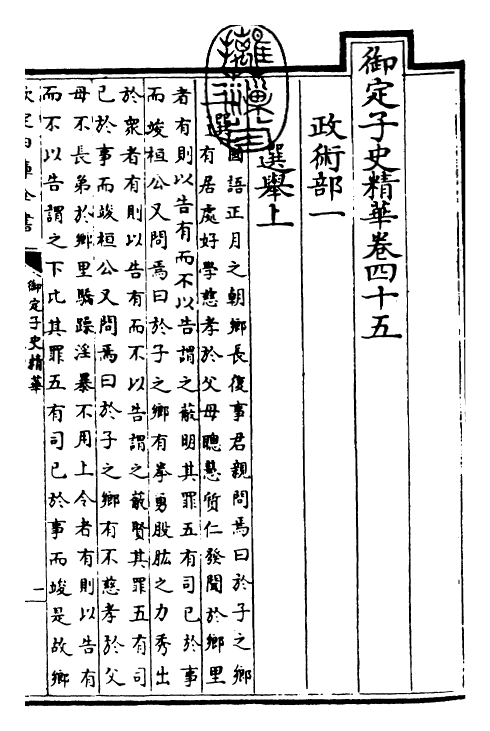 御定子史精華卷四十五
政術部一
選舉上
三選
國語正月之朝鄉長復事君親問焉曰於子之鄉
有居處好學慈孝於父母聰慧質仁發聞於鄉里
者有則以告有而不以告謂之蔽明其罪五有司已於事
而竣桓公又問焉曰於子之鄉有拳勇股肱之力秀出
於衆者有則以告有而不以告謂之蔽賢其罪五有司
已於事而竣桓公又問焉曰於子之鄉有不慈孝於父
母不長弟於鄉里驕躁淫暴不用上令者有則以告有
而不以告謂之下比其罪五有司已於事而竣是故鄉
欽定四庫全書
御定子史精華
一